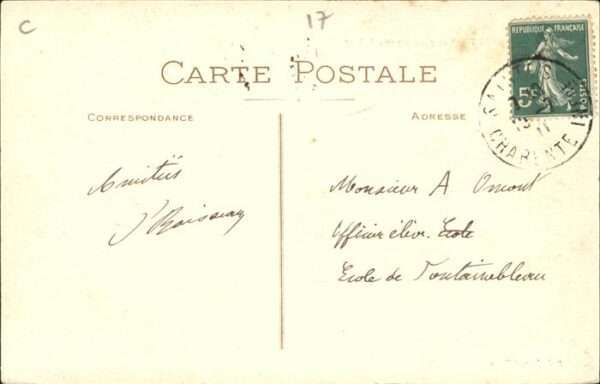 C
17
CARTE POSTALE
REPUBLIQUE FRANÇAISE
5c
POSTES
CHARENTE
CORRESPONDANCE
ADRESSE
Amitiés
Monsieur A Omont
Officier élève. Ecole
Ecole de Fontainebleau